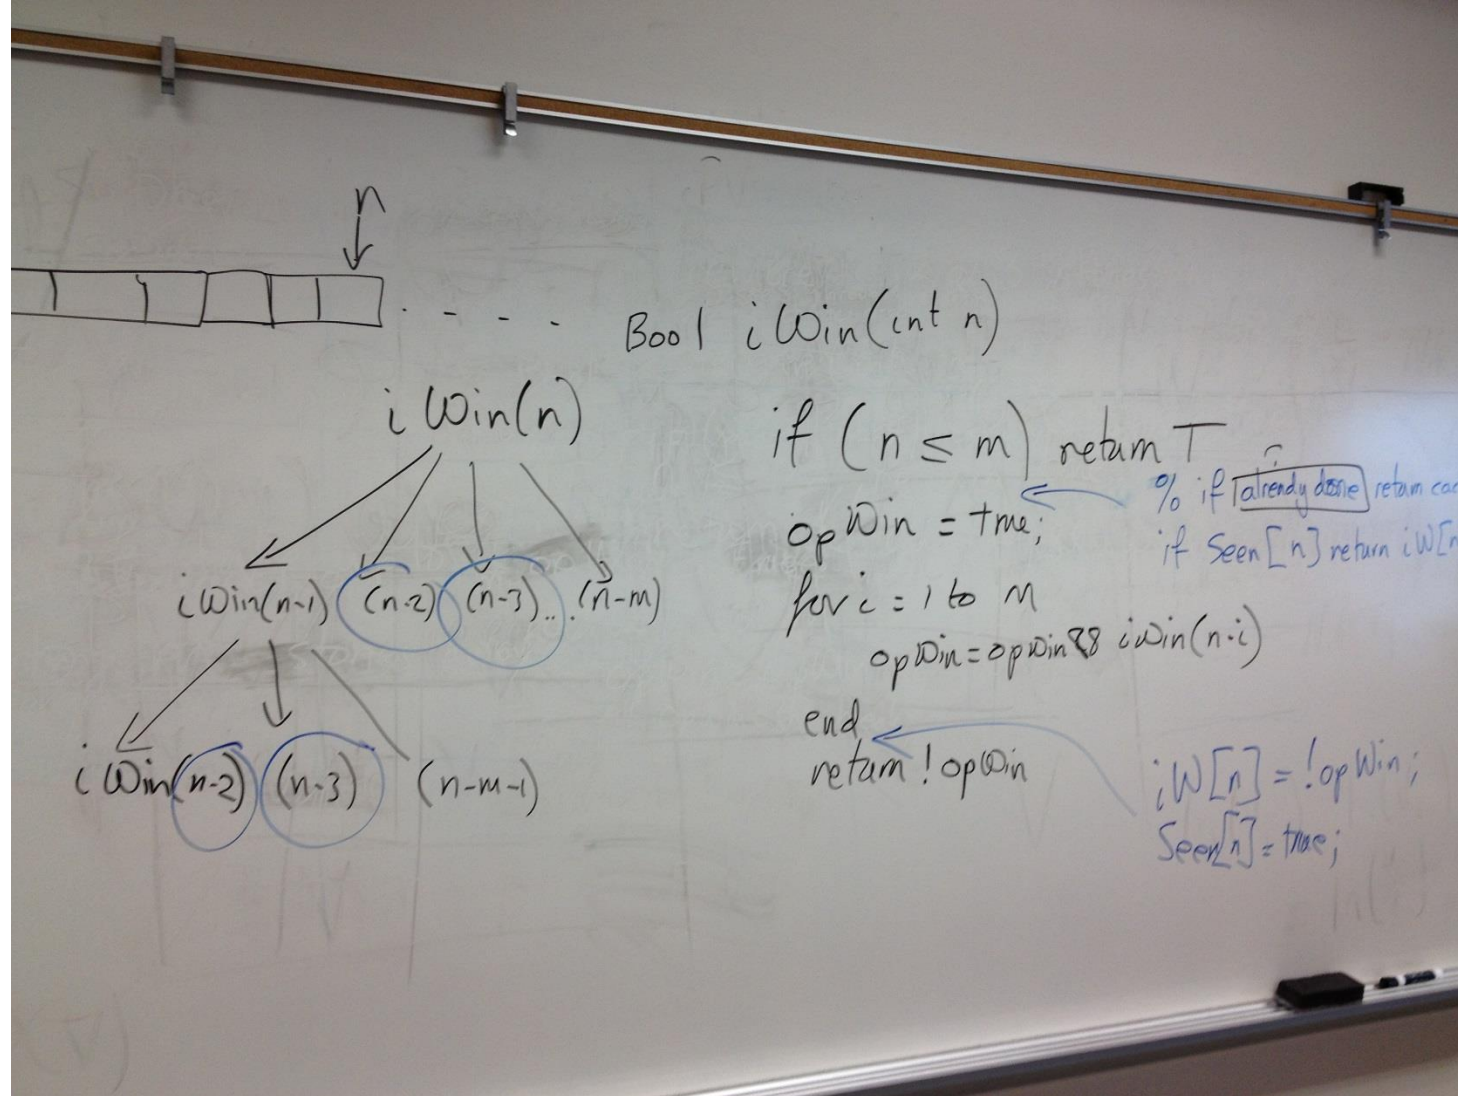 n
Bool iWin(int n)
iWin(n)
iWin(n-1) (n-2) (n-3)... (n-m)
iWin(n-2) (n-3) (n-m-1)
if (n ≤ m) return T
% if already done return
if Seen[n] return iW[n
opWin = true;
for i = 1 to m
opWin = opWin && iWin(n-i)
end
return !opWin
iW[n] = !opWin;
Seen[n] = true;